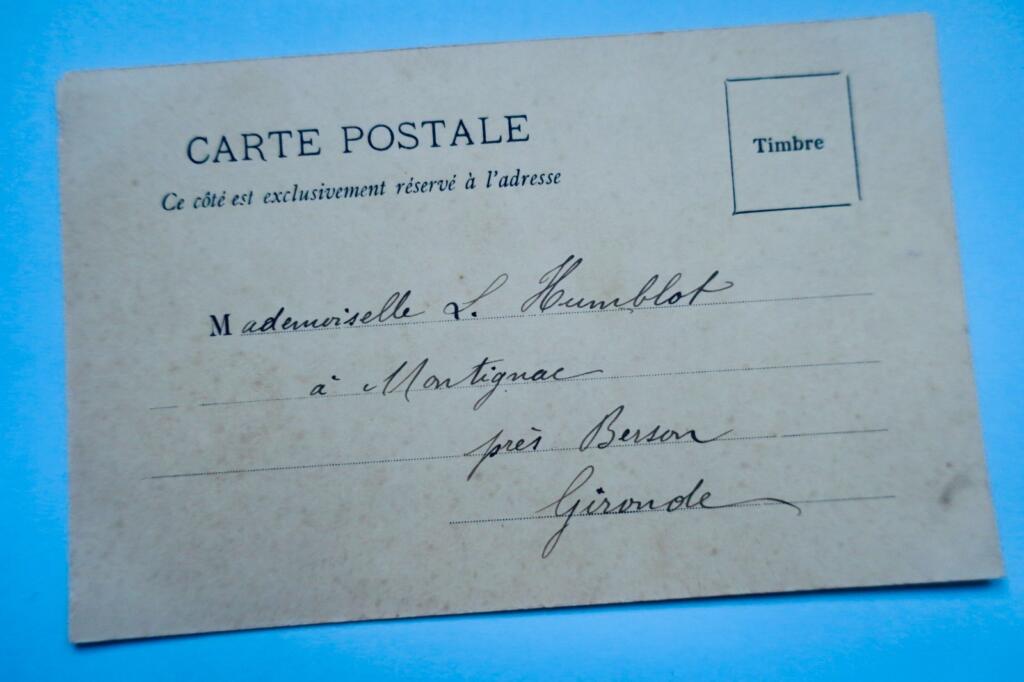 CARTE POSTALE
Ce côté est exclusivement réservé à l'adresse
Timbre
Mademoiselle L. Humblot
à Montignac
près Berson
Gironde